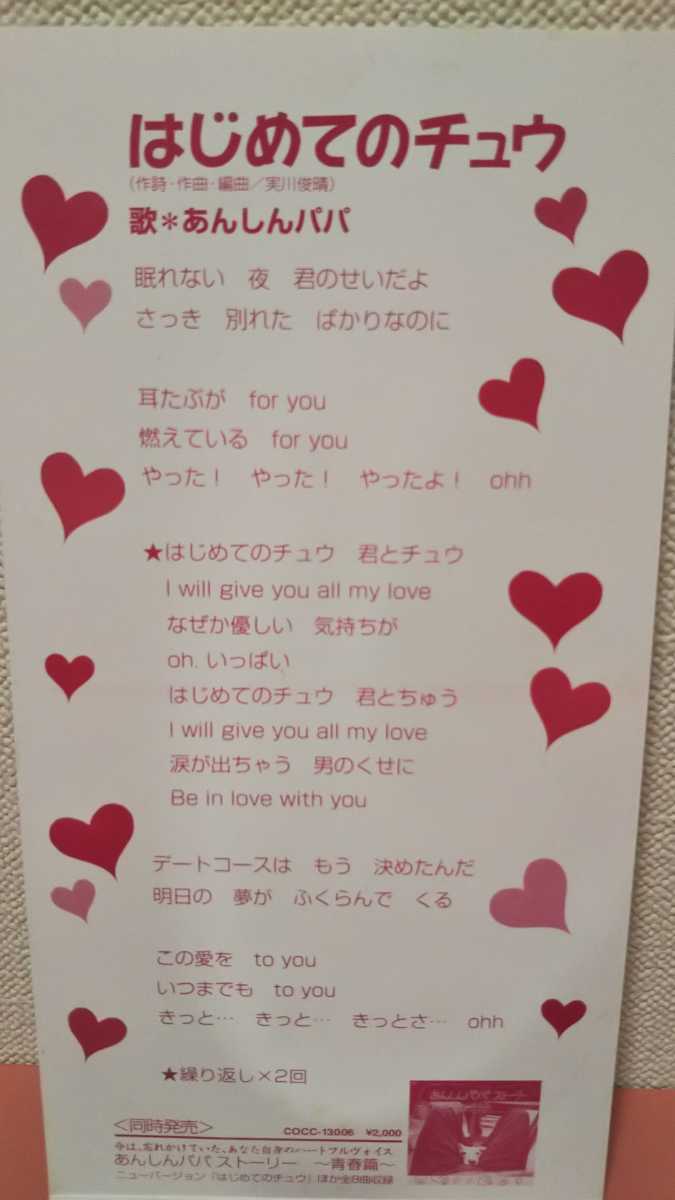 はじめてのチュウ
(作詩・作曲・編曲／実川俊晴)
歌＊あんしんパパ
眠れない　夜　君のせいだよ
さっき　別れた　ばかりなのに
耳たぶが　for you
燃えている　for you
やった！　やった！　やったよ！　ohh
★はじめてのチュウ　君とチュウ
I will give you all my love
なぜか優しい　気持ちが
oh. いっぱい
はじめてのチュウ　君とちゅう
I will give you all my love
涙が出ちゃう　男のくせに
Be in love with you
デートコースは　もう　決めたんだ
明日の　夢が　ふくらんで　くる
この愛を　to you
いつまでも　to you
きっと…　きっと…　きっとさ…　ohh
★繰り返し×2回
＜同時発売＞
COCC-13006　¥2,000
今は、忘れかけていた、あなた自身のハートフルヴォイス
あんしんパパ ストーリー　～青春篇～
ニューバージョン「はじめてのチュウ」ほか全8曲収録
あんしんパパ ストーリー